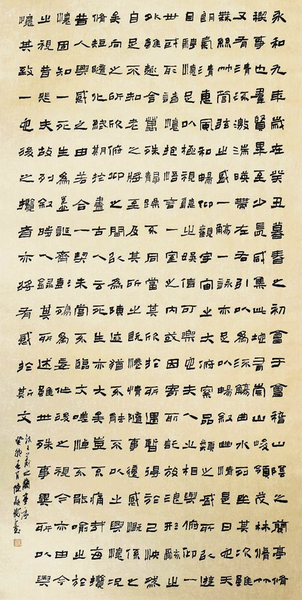 永和九年歲在癸丑暮春之初會于會稽山陰之蘭亭脩
禊事也群賢畢至少長咸集此地有崇山峻嶺茂林脩竹
又有清流激湍映帶左右引以為流觴曲水列坐其次雖
無絲竹管絃之盛一觴一詠亦足以暢敘幽情是日也天
朗氣清惠風和暢仰觀宇宙之大俯察品類之盛所以遊
目騁懷足以極視聽之娛信可樂也夫人之相與俯仰一
世或取諸懷抱悟言一室之內或因寄所託放浪形骸之
外雖趣舍萬殊靜躁不同當其欣於所遇暫得於己快然
自足不知老之將至及其所之既倦情隨事遷感慨係之
矣向之所欣俛仰之間已為陳迹猶不能不以之興懷況
脩短隨化終期於盡古人云死生亦大矣豈不痛哉每覽
昔人興感之由若合一契未嘗不臨文嗟悼不能喻之於
懷固知一死生為虛誕齊彭殤為妄作後之視今亦由今
之視昔悲夫故列敘時人錄其所述雖世殊事異所以興
懷其致一也後之覽者亦將有感於斯文